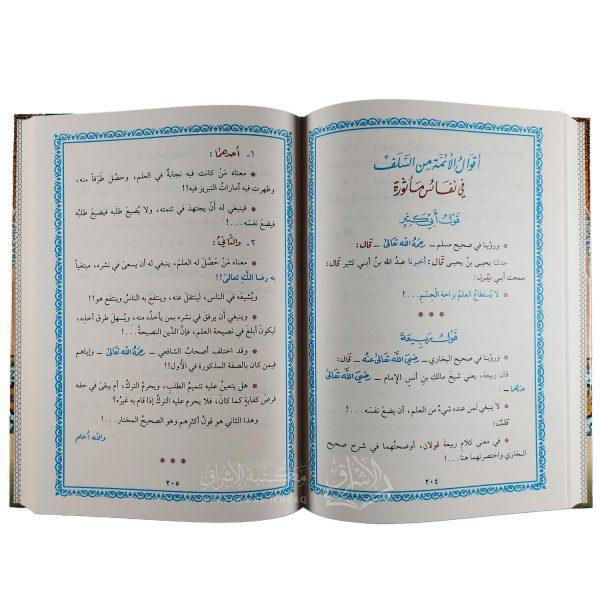 أقوال الأئمة من السلف
في نفائس مأثورة
قول أبي كثير
* وروينا في صحيح مسلم ــ رحمه الله تعالى ــ قال:
حدثنا يحيى بنُ يحيى قال: أخبرنا عبدُ الله بنُ أبي كثير قال:
سمعت أبي يقول:
* لا يُستطاعُ العلمُ براحةِ الجِسْمِ...!
* * *
قول ربيعة
* وروينا في صحيح البخاري ــ رضي الله تعالى عنه ــ قال:
قال ربيعة، يعني شيخَ مالك بنِ أنسٍ الإمام ــ رضي الله تعالى
عنهما ــ
* لا ينبغي لمن عنده شيءٌ من العلم، أن يضيعَ نفسَه...!
قلت:
* في معنى كلام ربيعةَ قولان، أوضحتُهما في شرح صحيح
البخاري واختصرتهما هنا...!
٢٠٤
١- أحدهما:
* معناه مَنْ كانت فيه نجابةٌ في العلم، وحصَّل طَرَفاً منه،
وظهرت فيه أماراتُ التبريز فيه!!
* فينبغي له أنْ يجتهدَ في تتمته، ولا يُضيعَ طلبَه فيضيعَ طلبُه
فيضيعَ نفسَه...!
٢- والثاني:
* معناه مَنْ حَصَّل له العلمُ، ينبغي له أن يسعى في نشره، مبتغياً
به رضا الله تعالى!!
* ويُشيعَه في الناس، لينتقلَ عنه، وينتفعَ به الناسُ وينتفع هو!!
* وينبغي أن يرفقَ في نشره بمن يأخذُه منه، ويُسهل طرق أخذِه،
ليكونَ أبلغَ في نصيحة العلم، فإنَّ الدِّينَ النصيحةُ...!
* وقد اختلف أصحابُ الشافعي ــ رحمه الله تعالى ــ وإياهم
فيمن كان بالصفة المذكورة في الأول!!
* هل يتعينُ عليه تتميمُ الطلب، ويحرمُ التركُ، أم يبقى في حقه
فرضَ كفايةٍ كما كان، فلا يحرم عليه التركُ إذا قام به غيرُه؟
* وهذا الثاني هو قولُ أكثرِهم وهو الصحيحُ المختار...!
والله أعلم
* * *
٢٠٥
مكتبة الإشراق